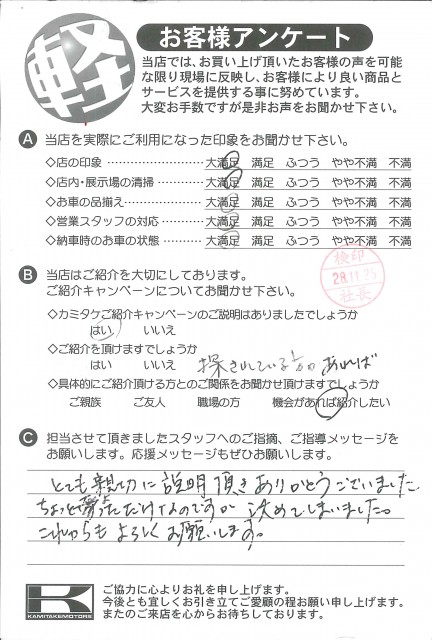 軽
お客様アンケート
当店では、お買い上げ頂いたお客様の声を可能
な限り現場に反映し、お客様により良い商品と
サービスを提供する事に努めています。
大変お手数ですが是非お声をお聞かせ下さい。
A 当店を実際にご利用になった印象をお聞かせ下さい。
◇店の印象 ………………… 大満足 満足 ふつう やや不満 不満
◇店内・展示場の清掃 ………… 大満足 満足 ふつう やや不満 不満
◇お車の品揃え ……………… 大満足 満足 ふつう やや不満 不満
◇営業スタッフの対応 ………… 大満足 満足 ふつう やや不満 不満
◇納車時のお車の状態 ………… 大満足 満足 ふつう やや不満 不満
検印
28.11.25
社長
B 当店はご紹介を大切にしてあります。
ご紹介キャンペーンについてお聞かせ下さい。
◇カミタケご紹介キャンペーンのご説明はありましたでしょうか
はい いいえ
◇ご紹介を頂けますでしょうか
はい いいえ 探されている方があれば
◇具体的にご紹介頂ける方とのご関係をお聞かせ頂けますでしょうか
ご親族 ご友人 職場の方 機会があれば紹介したい
C 担当させて頂きましたスタッフへのご指摘、ご指導メッセージを
お願いします。応援メッセージもぜひお願いします。
とても親切に説明頂きありがとうございました。
ちょっと寄っただけなのですが決めてしまいました。
これからもよろしくお願いします。
K
KAMITAKEMOTORS
ご協力に心よりお礼を申し上げます。
今後とも宜しくお引き立てご愛顧の程お願い申し上げます。
またのご来店を心からお待ちしております。